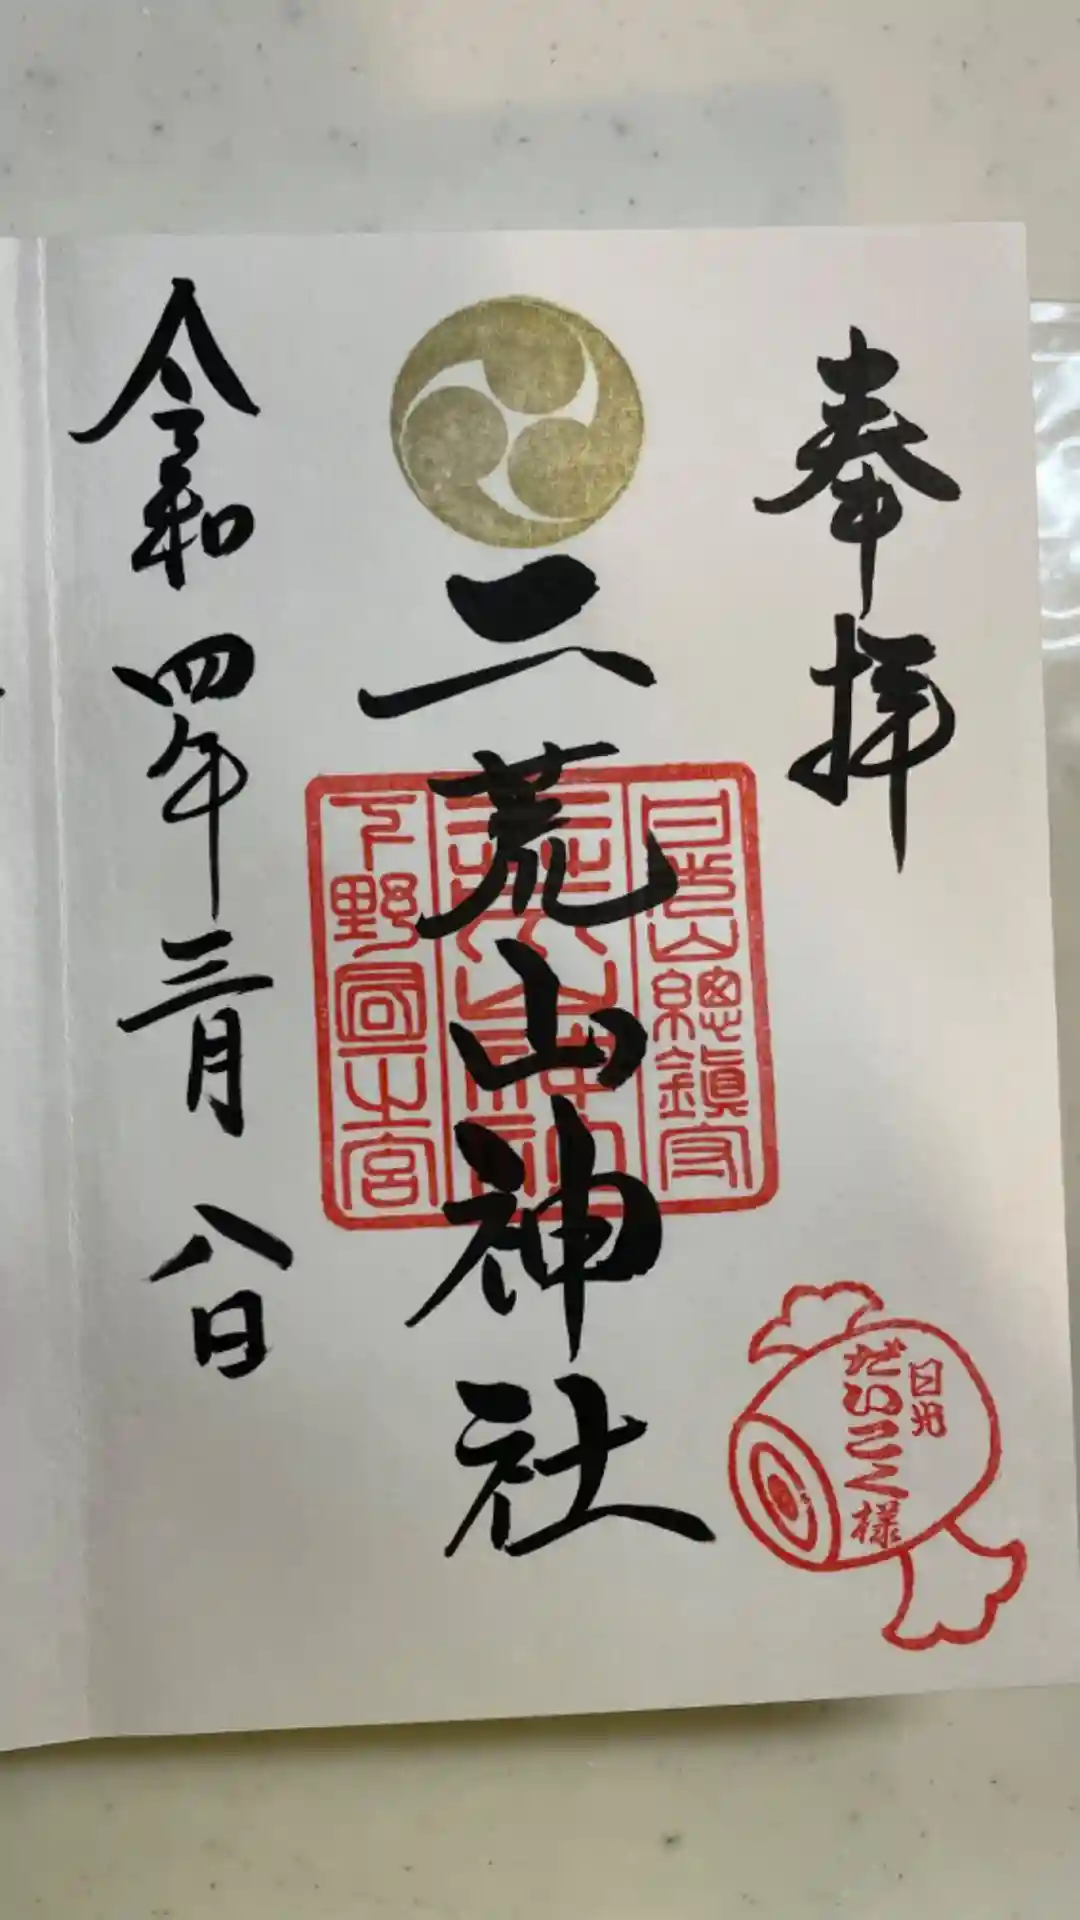 奉拝
日光山總鎮守
二荒山神社
二荒山神社
下野國一之宮
令和四年三月八日
日光
だいこく様